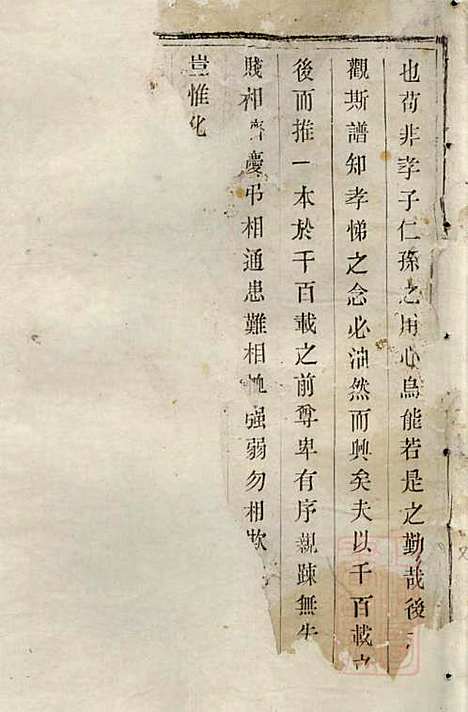 也苟非孝子仁孫之用心烏能若是之勤哉後
觀斯譜知孝悌之念必油然而興矣夫以千百載之
後而推一本於千百載之前尊卑有序親踈無失
賤相慶弔相通患難相恤强弱勿相欺
豈惟化